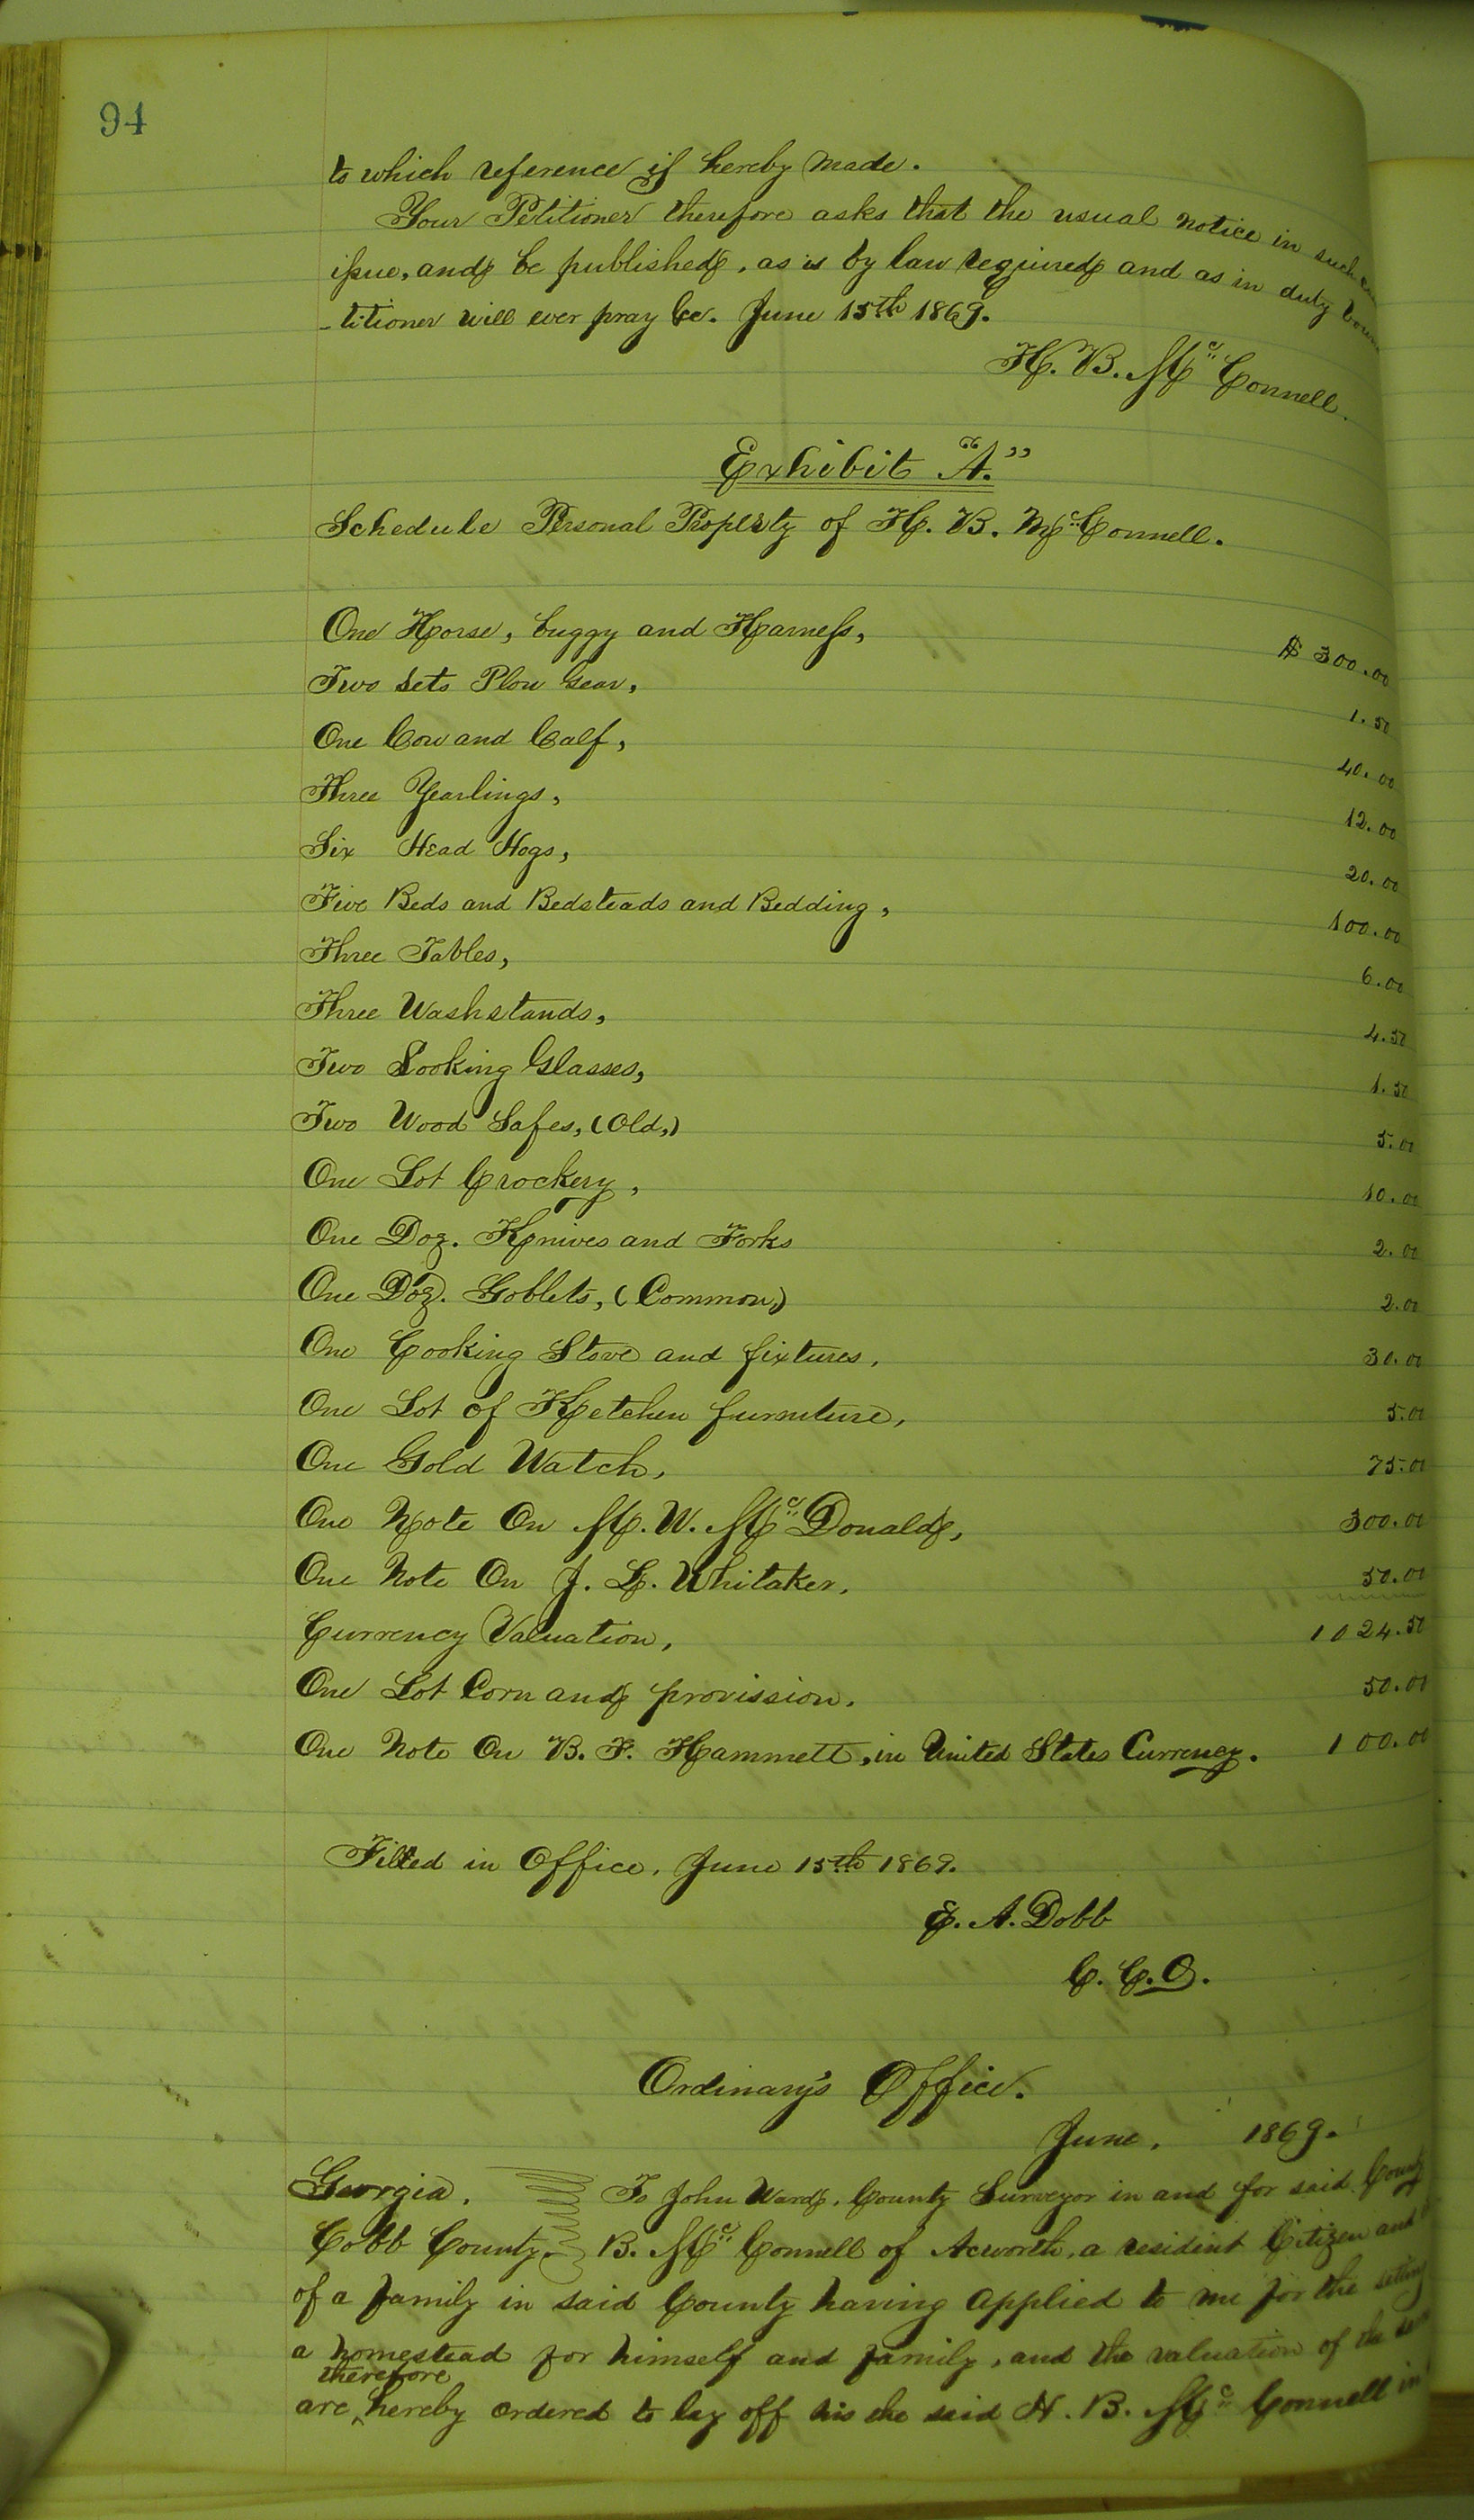 94
to which reference is hereby made.
Your Petitioner therefore asks that the usual notice in such
issue, and be published, as is by law required and as in duty
-titioner will ever pray &c. June 15th 1869.
H. B. McConnell.
Exhibit "A."
Schedule Personal Property of H. B. McConnell.
One Horse, buggy and Harness, $300.00
Two sets Plow Gear, 1.50
One Cow and Calf, 40.00
Three Yearlings, 12.00
Six Head Hogs, 20.00
Five Beds and Bedsteads and Bedding, 100.00
Three Tables, 6.00
Three Washstands, 4.50
Two Looking Glasses, 1.50
Two Wood Safes, (Old,) 5.00
One Lot Crockery, 10.00
One Doz. Knives and Forks 2.00
One Doz. Goblets, (Common,) 2.00
One Cooking Stove and fixtures, 30.00
One Lot of Ketchen furniture, 5.00
One Gold Watch, 75.00
One Note On M. W. McDonald, 300.00
One Note On J. L. Whitaker, 50.00
Currency Valuation, 1024.50
One Lot Corn and provission. 50.00
One Note On B. F. Hammett, in United States Currency. 100.00
Filled in Office, June 15th 1869.
E. A. Dobb
C. C. O.
Ordinary's Office.
June, 1869.
Georgia, To John Ward, County Surveyor in and for said County
Cobb County. B. McConnell of Acworth, a resident Citizen and
of a family in said County having applied to me for the setting
a homestead for himself and family, and the valuation of the
therefore
are hereby ordered to lay off his the said H. B. McConnell in